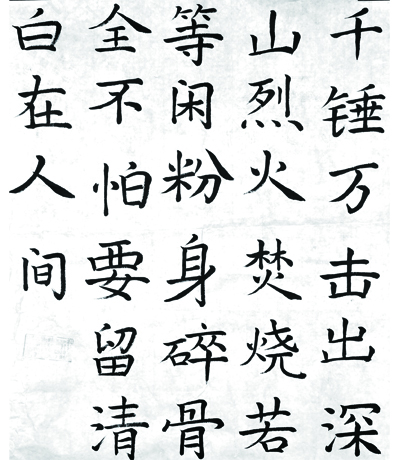 千锤万击出深
山烈火焚烧若
等闲粉身碎骨
全不怕要留清
白在人间